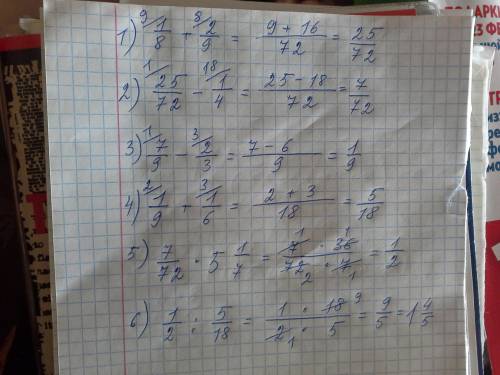 ПОДАРКИ
1) ⁹/1/8 + ⁸/2/9 = (9 + 16)/72 = 25/72
2) ¹/25/72 − ¹⁸/1/4 = (25 − 18)/72 = 7/72
3) ¹/7/9 − ³/2/3 = (7 − 6)/9 = 1/9
4) ²/1/9 + ³/1/6 = (2 + 3)/18 = 5/18
5) 7/72 · 5 1/7 = (7 ¹ · 36 ¹)/(72 ₂ · 7 ₁) = 1/2
6) 1/2 : 5/18 = (1 · 18 ⁹)/(2 ₁ · 5) = 9/5 = 1 4/5